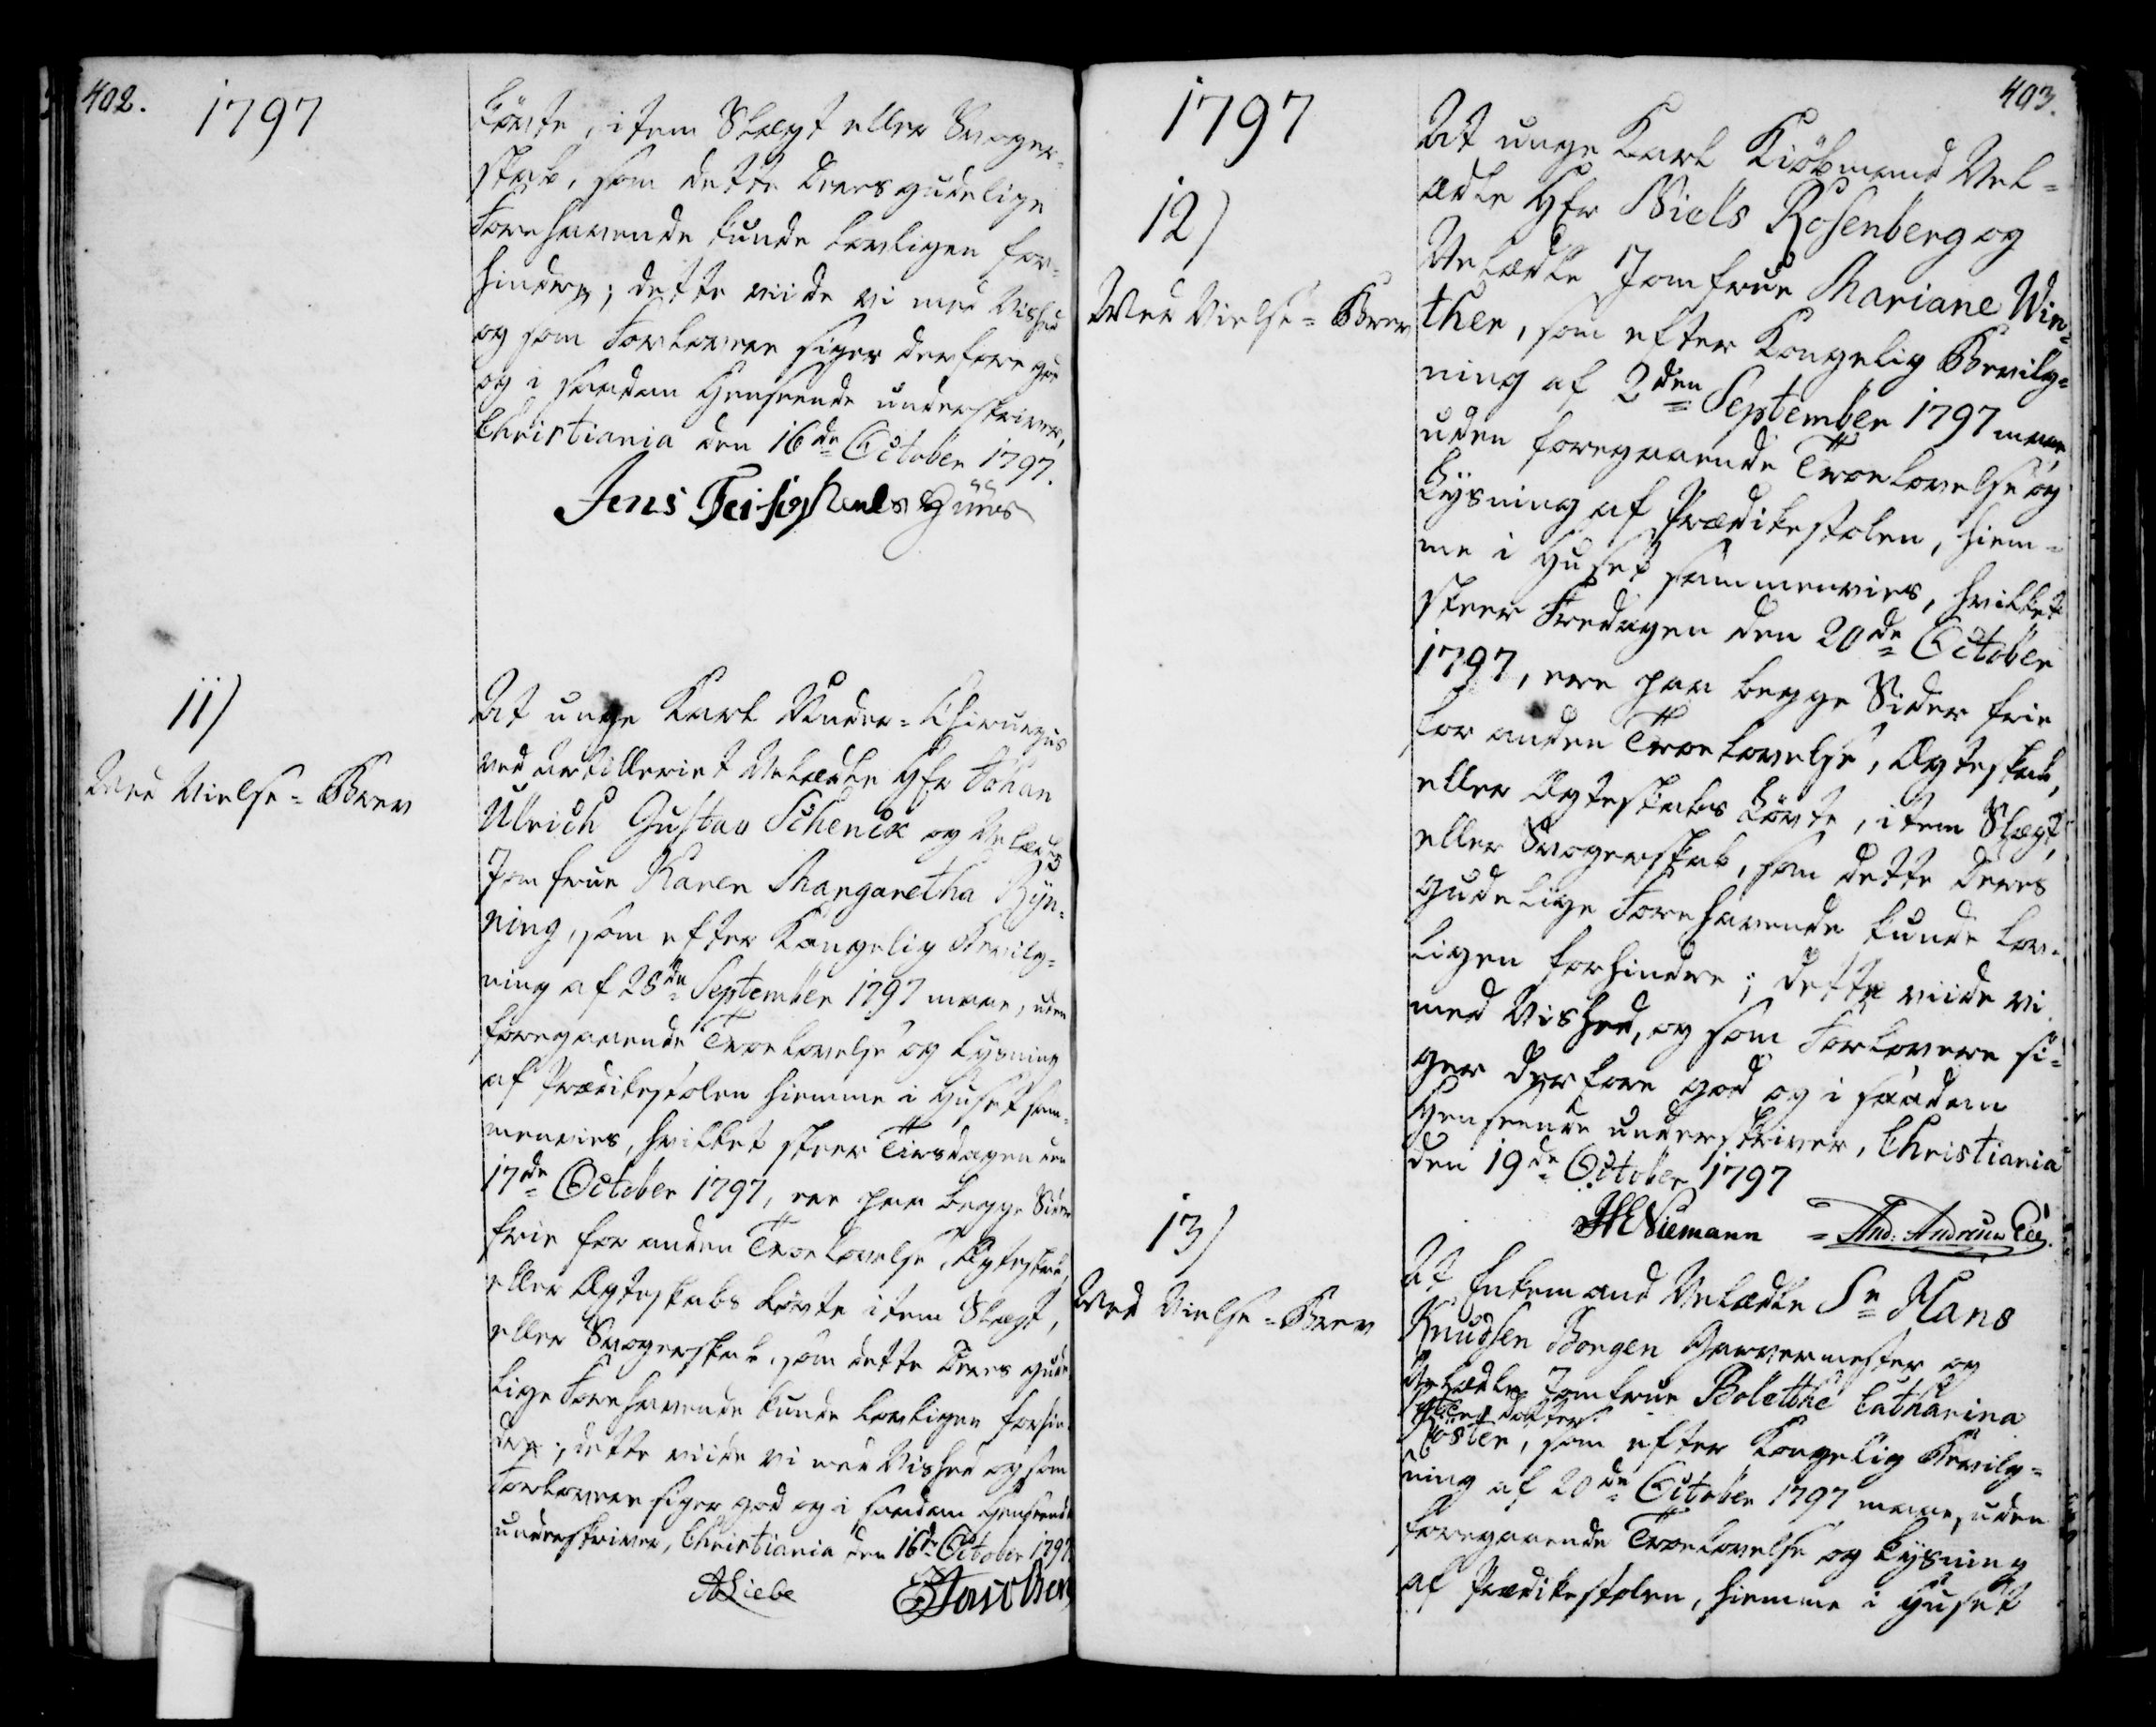 402.
1797
Löwte, item Slægt eller Svoger-
skab, som dette Deres gudelige
Forehavende kunde lovligen for-
hindre; dette viide vi med Vished
og som Forlovere siger derfore god
og i saadan Henseende underskriver,
Christiania den 16de October 1797.
Jens
11)
Med Vielse-Brev
At unge Karl Under-Chirurgus
ved Artilleriet Velædle Hr Johan
Ulrich Gustav Schenck og Velædle
Jomfrue Karen Margaretha Ryn-
ning, som efter Kongelig Bevilg-
ning af 28de September 1797 maae, uden
foregaaende Troelovelse og Lysning
af Prædikestolen hiemme i Huset sam-
menvies, hvilket skeer Tirsdagen den
17de October 1797, ere paa begge Sider
frie for anden Troelovelse, Ægteskab,
eller Ægteskabs Løvte item Slægt,
eller Svogerskab, som dette Deres gude-
lige Forehavende kunde lovligen forhin-
dre; dette viide vi med Vished og som
Forlovere siger god og i saadan Henseende
underskriver, Christiania den 16de October 1797
ALiebe
403.
1797
12)
Med Vielse-Brev
At unge Karl Kiöbmand Vel-
ædle Hr Niels Rosenberg og
Velædle Jomfrue Mariane Win-
ther, som efter Kongelig Bevilg-
ning af 2den September 1797 maae
uden foregaaende Troelovelse og
Lysning af Prædikestolen, hiem-
me i Huset sammenvies, hvilket
skeer Fredagen den 20de October
1797, ere paa begge Sider frie
for anden Troelovelse, Ægteskab,
eller Ægteskabs Løvte, item Slægt,
eller Svogerskab, som dette Deres
gudelige Forehavende kunde lov-
ligen forhindre; dette viide vi
med Vished, og som Forlovere si-
ger derfore god og i saadan
Henseende underskriver, Christiania
den 19de October 1797
Niemann
13)
Med Vielse-Brev
At Enkemand Velædle Sr Hans
Knudsen Borgen Garvermester og
Velædle Jomfrue Bolethe Catharina
datter
Koster, som efter Kongelig Bevilg-
ning af 20de October 1797 maae, uden
foregaaende Troelovelse og Lysning
af Prædikestolen, hiemme i Huset